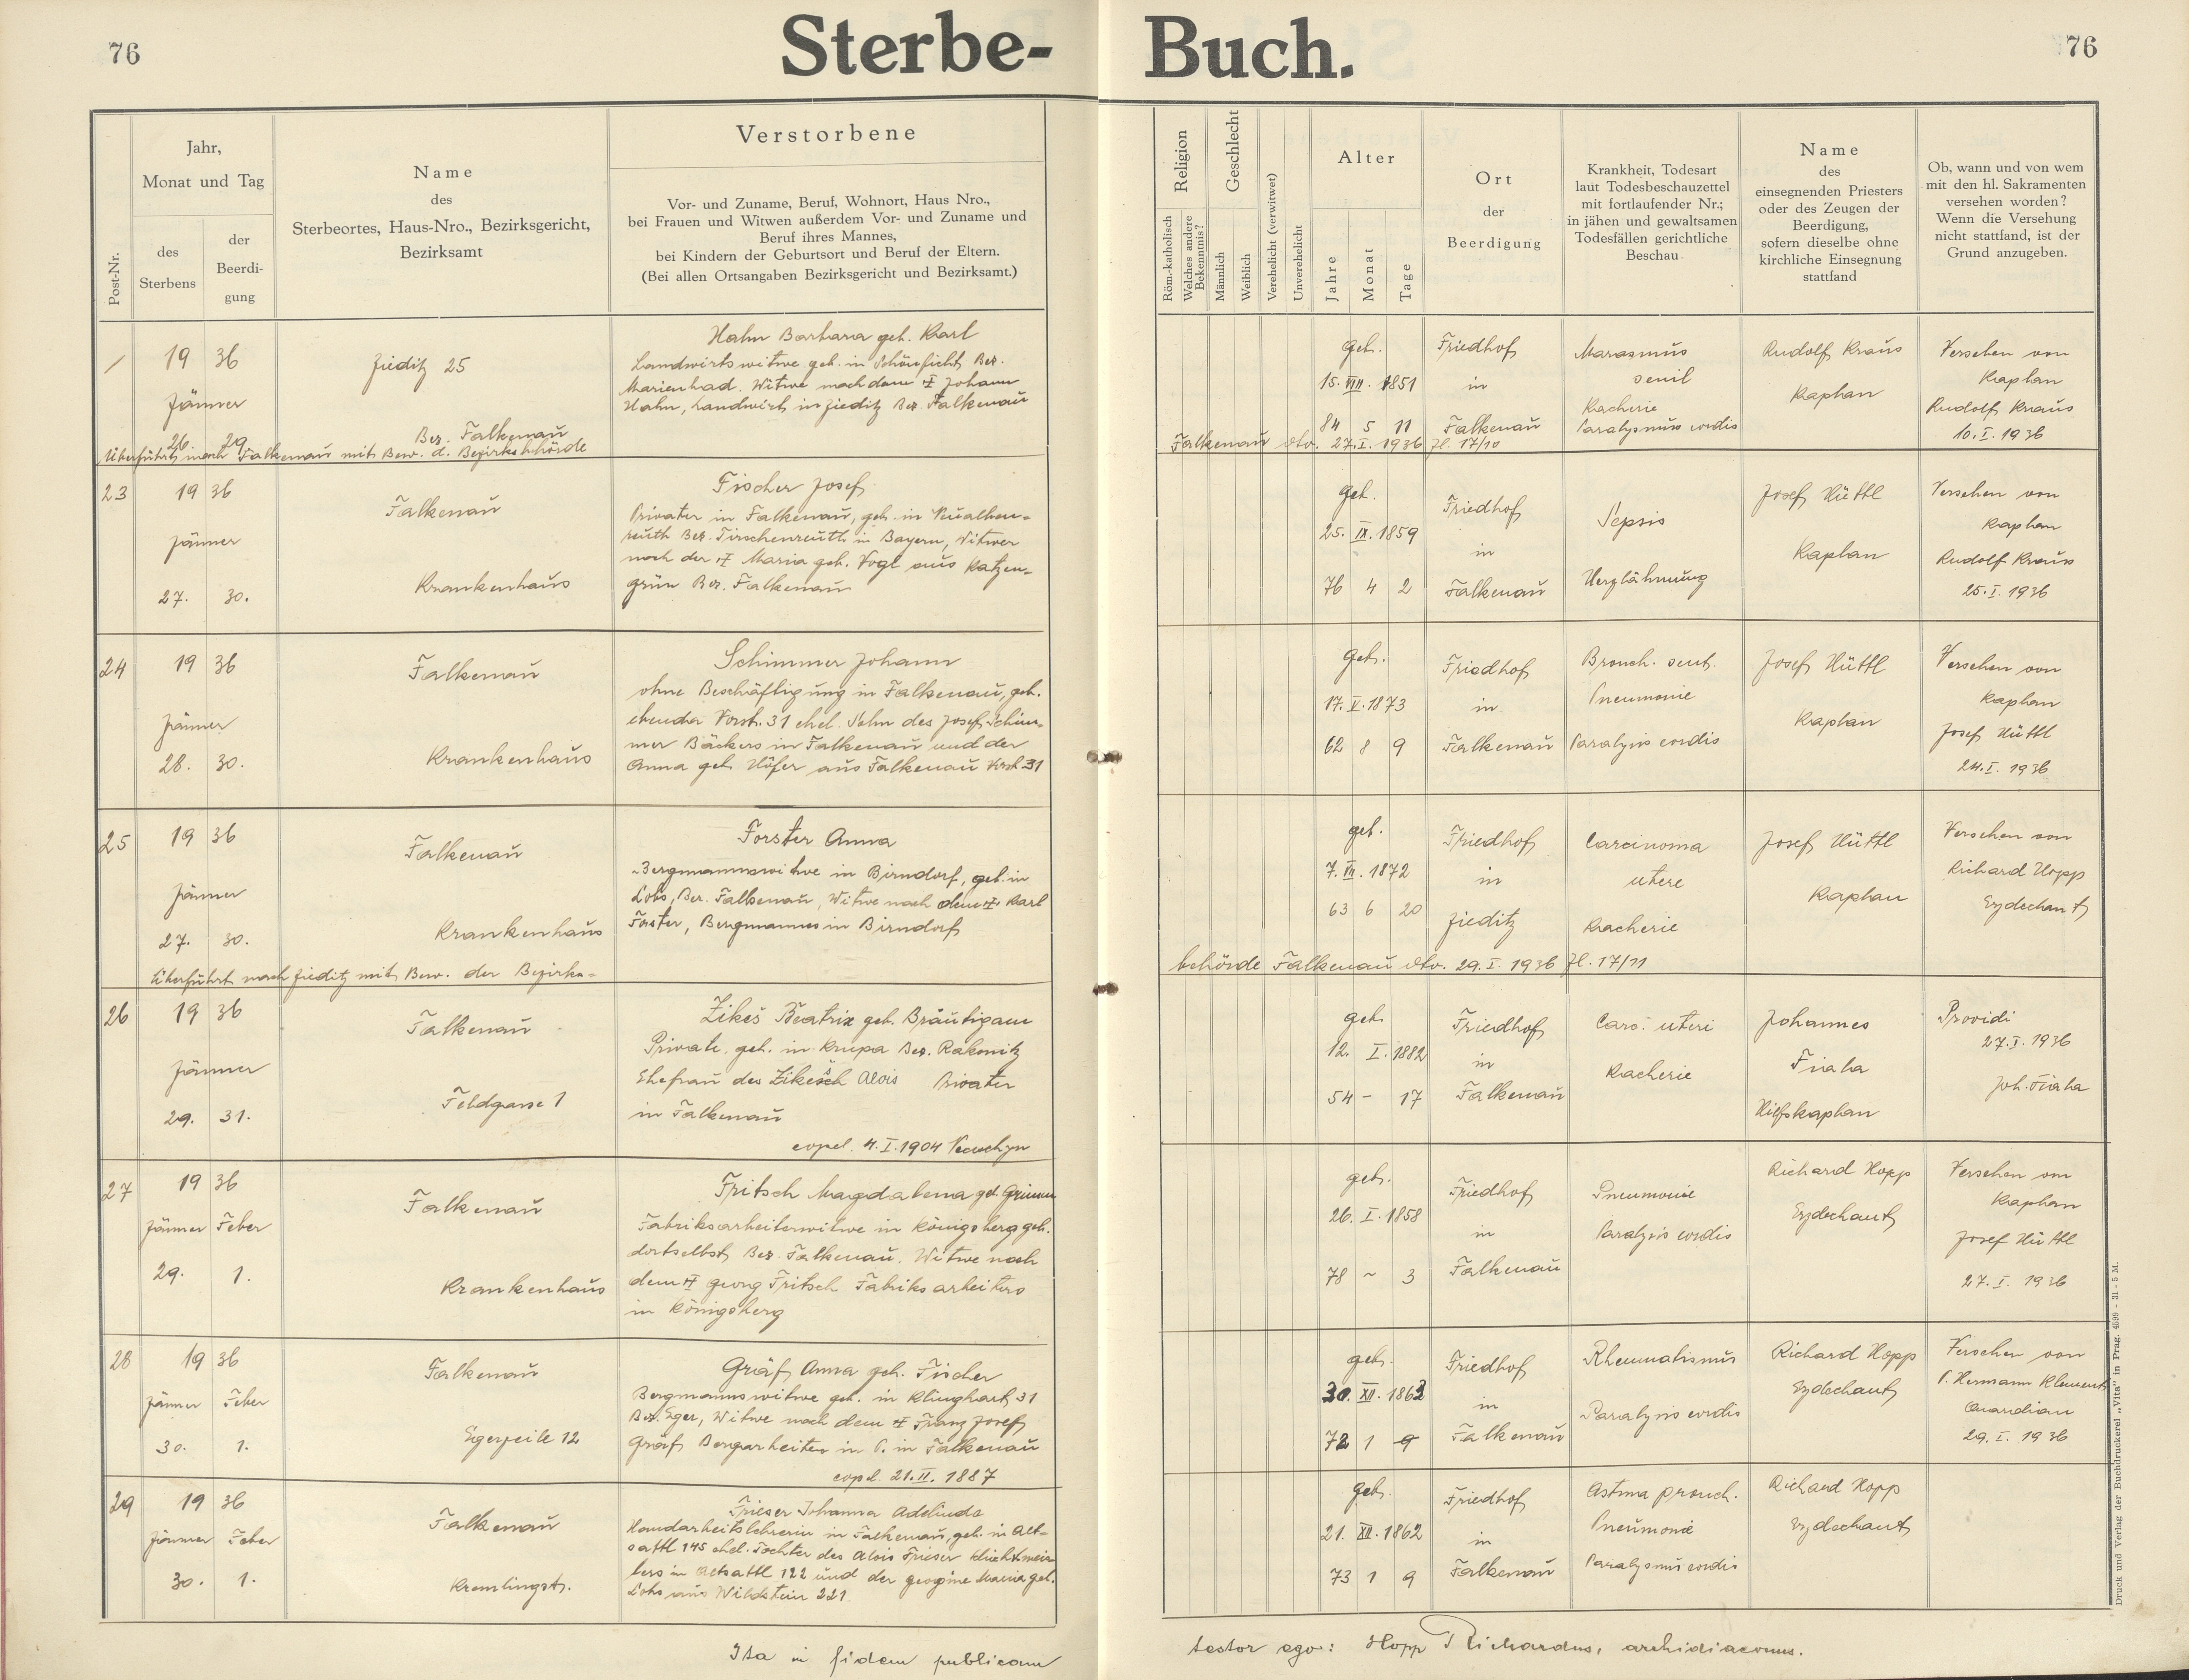 76
Sterbe-
Buch.
76
Post-Nr.
Jahr,
Monat und Tag
des
Sterbens
der
Beerdi-
gung
Name
des
Sterbeortes, Haus-Nro., Bezirksgericht,
Bezirksamt
Verstorbene
Vor- und Zuname, Beruf, Wohnort, Haus Nro.,
bei Frauen und Witwen außerdem Vor- und Zuname und
Beruf ihres Mannes,
bei Kindern der Geburtsort und Beruf der Eltern.
(Bei allen Ortsangaben Bezirksgericht und Bezirksamt.)
Religion
Röm.-katholisch
Welches andere
Bekenntnis?
Geschlecht
Männlich
Weiblich
Verehelicht (verwitwet)
Unverehelicht
Alter
Jahre
Monat
Tage
Ort
der
Beerdigung
Krankheit, Todesart
laut Todesbeschauzettel
mit fortlaufender Nr.;
in jähen und gewaltsamen
Todesfällen gerichtliche
Beschau
Name
des
einsegnenden Priesters
oder des Zeugen der
Beerdigung,
sofern dieselbe ohne
kirchliche Einsegnung
stattfand
Ob, wann und von wem
mit den hl. Sakramenten
versehen worden?
Wenn die Versehung
nicht stattfand, ist der
Grund anzugeben.
/
19 36
Jänner
26. 29.
Zieditz 25
Bez. Falkenau
Hahn Barbara geb. Karl
Landwirtswitwe geb. in Schönficht Bez.
Marienbad. Witwe nach dem † Johann
Hahn, Landwirt in Zieditz Bez. Falkenau
geb.
15. VIII. 1851
84 5 11
Friedhof
in
Falkenau
Marasmus
senil
Kacherie
Paralysmus cordis
Rudolf Kraus
Kaplan
Versehen von
Kaplan
Rudolf Kraus
10. I. 1936
Überführt nach Falkenau mit Bew. d. Bezirksbehörde
Falkenau dto. 27. I. 1936 Zl. 17/10
23
19 36
Jänner
27. 30.
Falkenau
Krankenhaus
Fischer Josef
Privater in Falkenau, geb. in Neualben-
reuth Bez. Tirschenreuth in Bayern, Witwer
nach der † Maria geb. Vogl aus Katzen-
grün Bez. Falkenau
geb.
25. IX. 1859
76 4 2
Friedhof
in
Falkenau
Sepsis
Herzlähmung
Josef Hüttl
Kaplan
Versehen von
Kaplan
Rudolf Kraus
25. I. 1936
24
19 36
Jänner
28. 30.
Falkenau
Krankenhaus
Schimmer Johann
ohne Beschäftigung in Falkenau, geb.
ebenda Vorst. 31 ehel. Sohn des Josef Schim-
mer Bäckers in Falkenau und der
Anna geb. Höfer aus Falkenau Vorst. 31
geb.
17. V. 1873
62 8 9
Friedhof
in
Falkenau
Bronch.
Pneumonie
Paralysis cordis
Josef Hüttl
Kaplan
Versehen von
Kaplan
Josef Hüttl
24. I. 1936
25
19 36
Jänner
27. 30.
Falkenau
Krankenhaus
Forster Anna
Bergmannswitwe in Birndorf, geb. in
Lobs, Bez. Falkenau, Witwe nach dem † Karl
Forster, Bergmannes in Birndorf
geb.
7. VII. 1872
63 6 20
Friedhof
in
Zieditz
Carcinoma
utere
Kacherie
Josef Hüttl
Kaplan
Versehen von
Richard Hopp
Erzdechant
Überführt nach Zieditz mit Bew. der Bezirks-
behörde Falkenau dto. 29. I. 1936 Zl. 17/11
26
19 36
Jänner
29. 31.
Falkenau
Feldgasse 1
Zikeš Beatrix geb. Bräutigam
Private, geb. in Krupa Bez. Rakonitz
Ehefrau des Zikesch Alois Privater
in Falkenau
copul. 4. I. 1904
geb.
12. I. 1882
54 - 17
Friedhof
in
Falkenau
Carc. uteri
Kacherie
Johannes
Fiala
Hilfskaplan
Providi
27. I. 1936
Joh. Fiala
27
19 36
Jänner Feber
29. 1.
Falkenau
Krankenhaus
Fritsch Magdalena geb. Grimm
Fabriksarbeiterwitwe in Königsberg geb.
dortselbst Bez. Falkenau. Witwe nach
dem † Georg Fritsch Fabriksarbeiters
in Königsberg
geb.
26. I. 1858
78 ~ 3
Friedhof
in
Falkenau
Pneumonie
Paralysis cordis
Richard Hopp
Erzdechant
Versehen von
Kaplan
Josef Hüttl
27. I. 1936
28
19 36
Jänner Feber
30. 1.
Falkenau
Egerzeile 12
Gräf Anna geb. Fischer
Bergmannswitwe geb. in Klinghart 31
Bez. Eger, Witwe nach dem † Franz Josef
Gräf Bergarbeiter in P. in Falkenau
copul. 21. II. 1887
geb.
30. XII. 1863
72 1 9
Friedhof
in
Falkenau
Rheumatismus
Paralysis cordis
Richard Hopp
Erzdechant
Versehen von
P. Hermann Klement
Quardian
29. I. 1936
29
19 36
Jänner Feber
30. 1.
Falkenau
Kremlingstr.
Frieser Johanna Adelinde
Handarbeitslehrerin in Falkenau, geb. in Alt-
sattl 145 ehel. Tochter des Alois Frieser
in Altsattl 122 und der Maria geb.
Lohs aus Wildstein 221
geb.
21. XII. 1862
73 1 9
Friedhof
in
Falkenau
Astma pronch.
Pneumonie
Paralysmus cordis
Richard Hopp
Erzdechant
Ita in fidem publicam
testor ego: Hopp Richardus, archidiaconus.
Druck und Verlag der Buchdruckerei „Vita" in Prag. 4599 - 31 - 5 M.